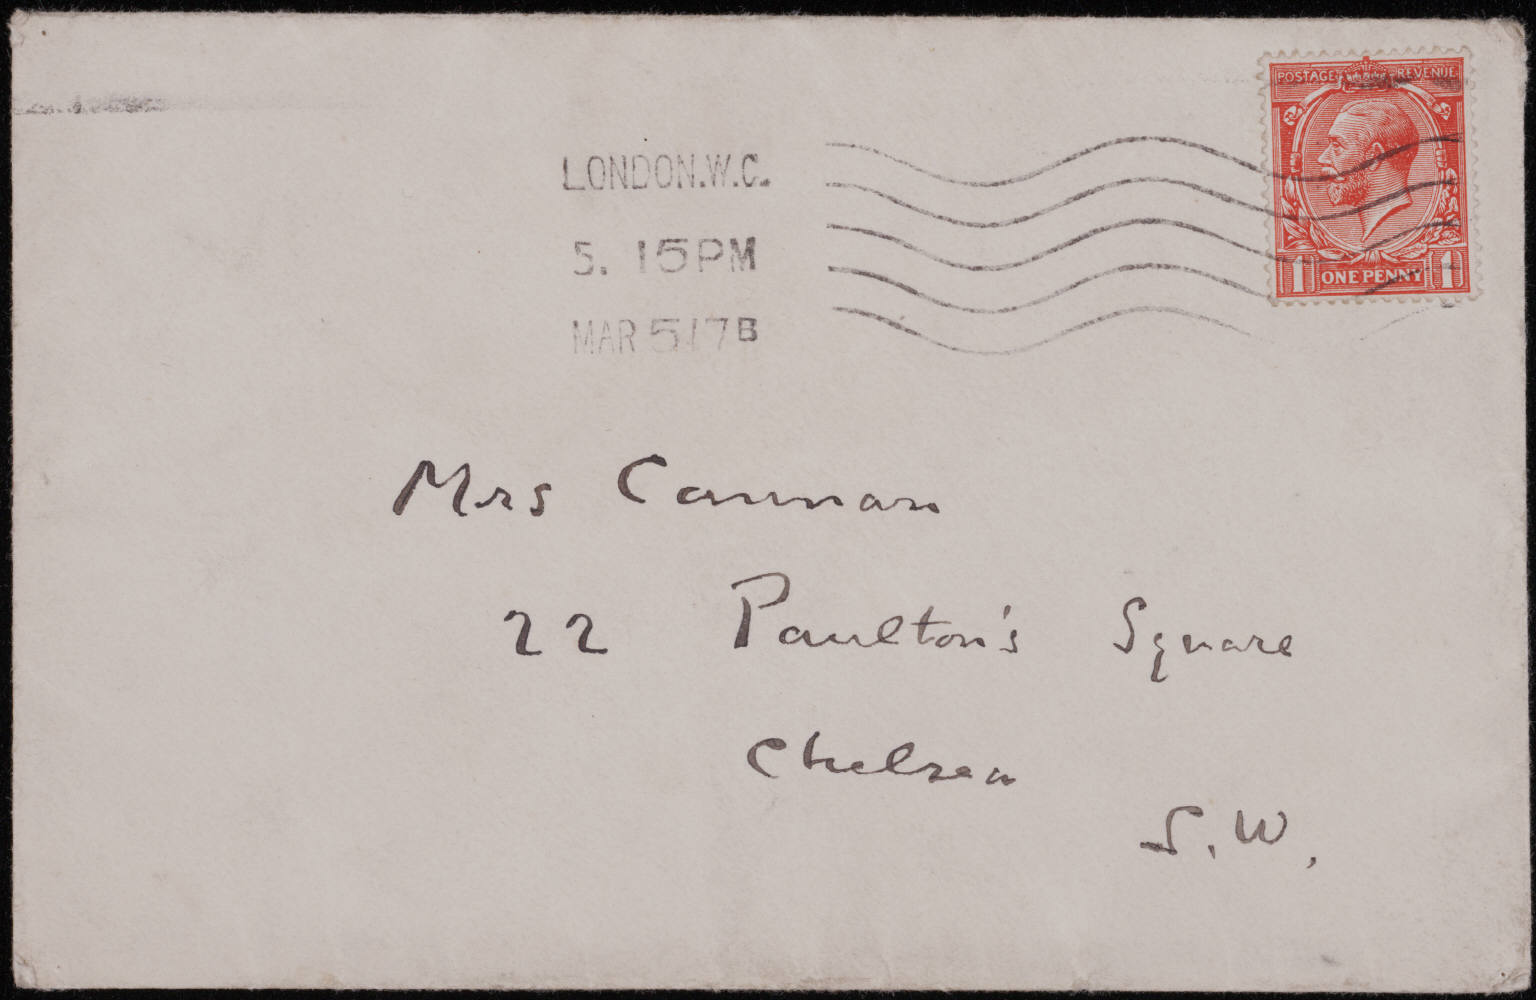 POSTAGE REVENUE
LONDON.W.C.
5. 15 PM
MAR 5 17 B
1 ONE PENNY 1
Mrs Cannan
22 Paulton's Square
Chelsea
S.W.